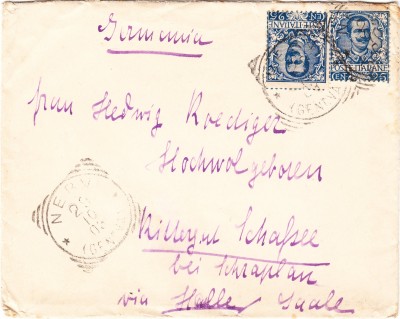 Germania
POSTE ITALIANE
CEN. 25
POSTE ITALIANE
CEN. 25
(GENOVA)
Frau Hedwig Roediger
Hochwolgeboren
NERVI
(GENOVA)
Rittergut Schafsee
bei Schraplau
via Halle Saale